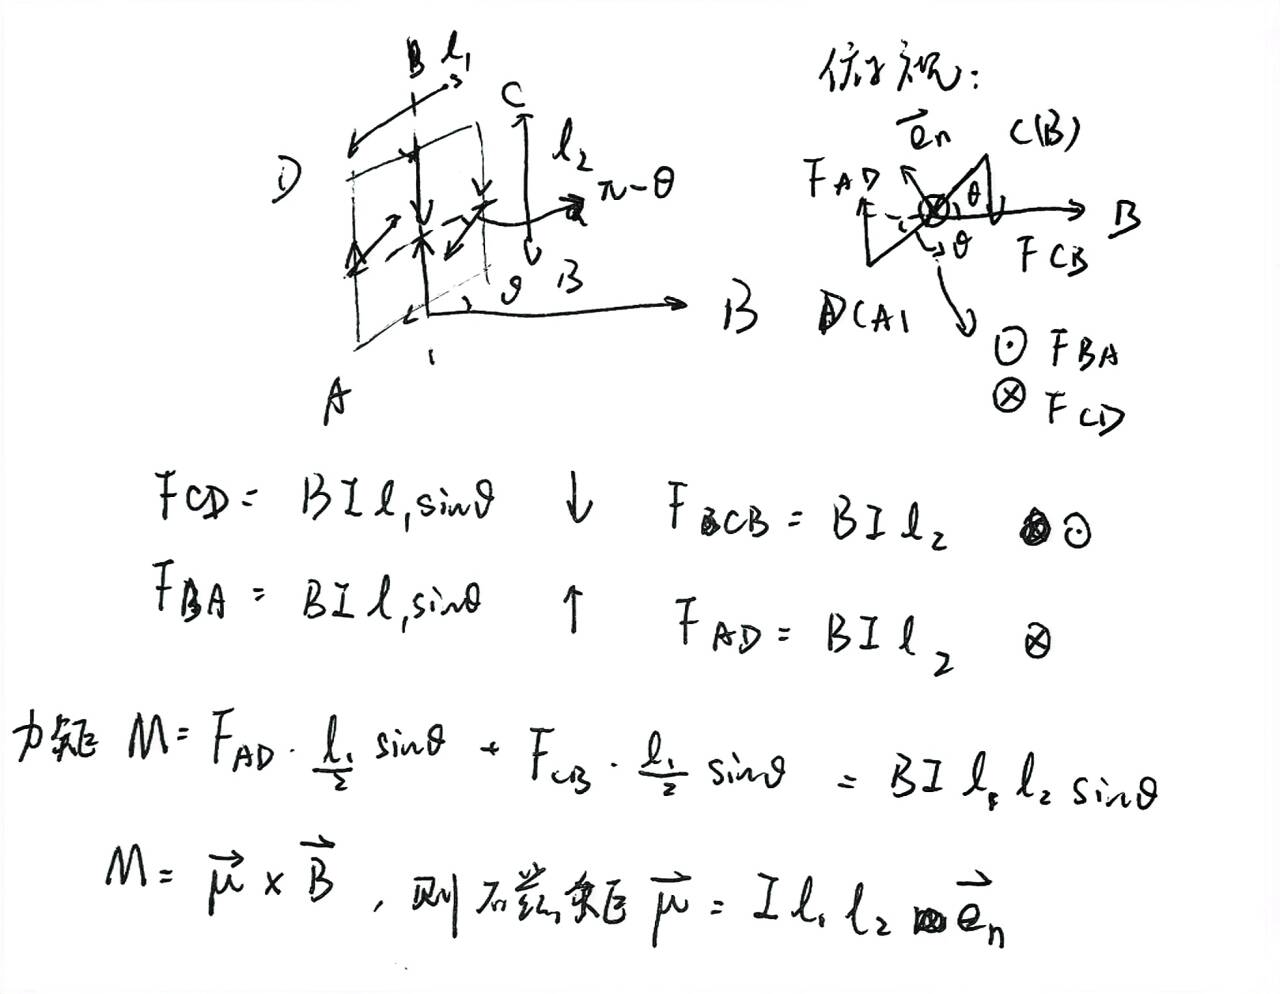 B l₁
俯视:
C
D
l₂
π-θ
θ B
B
A
e⃗n C(B)
F AD
θ
B
θ F CB
D(A)
⊙ F BA
⊗ F CD
F CD = BIl₁sinθ ↓ F CB = BIl₂ ⊙
F BA = BIl₁sinθ ↑ F AD = BIl₂ ⊗
力矩 M = F AD · l₁/2 sinθ + F CB · l₁/2 sinθ = BIl₁l₂sinθ
M = μ⃗ × B⃗ , 则磁矩 μ⃗ = Il₁l₂ e⃗n